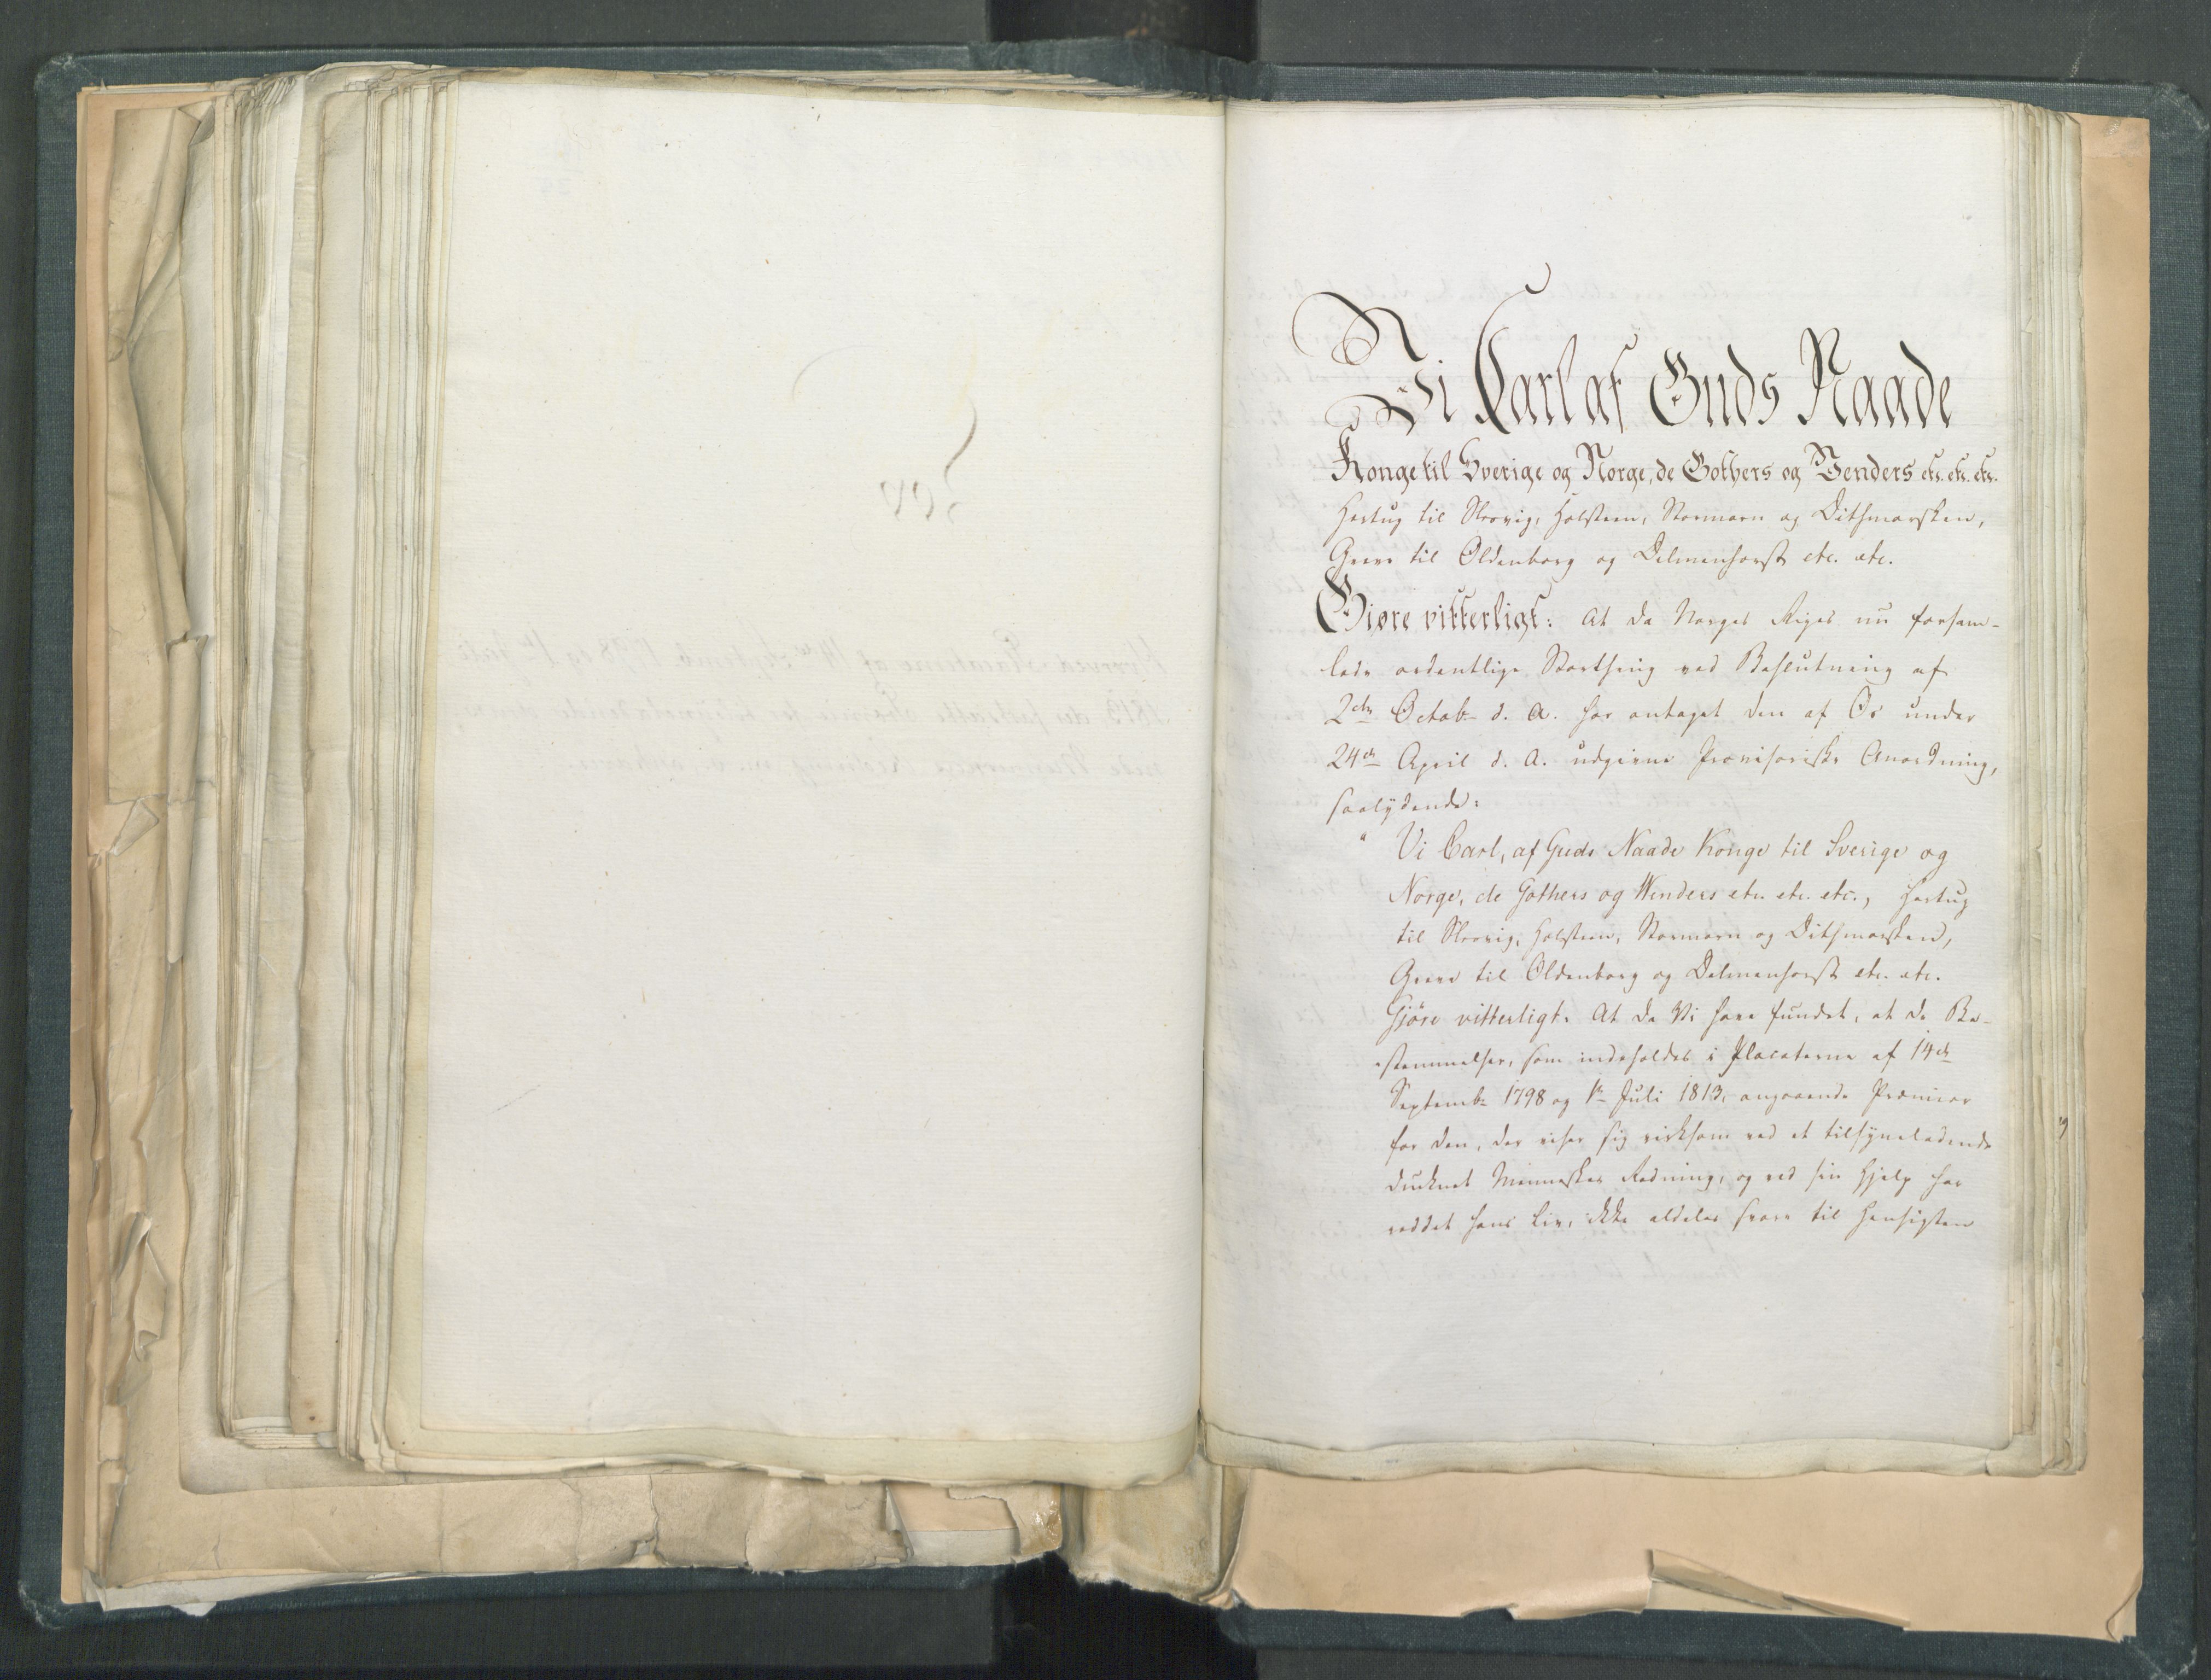 Vi Carl af Guds Naade
Konge til Sverige og Norge, de Gothers og Venders etc. etc. etc.
Hertug til Slesvig, Holsteen, Stormarn og Dithmarsken,
Greve til Oldenborg og Delmenhorst etc. etc.
Giøre vitterligt: At da Norges Riges nu forsam-
lede ordentlige Storthing ved Beslutning af
2den Octobr d. A. har antaget den af Os under
24de April d. A. udgivne Provisoriske Anordning,
saalydende:
" Vi Carl, af Guds Naade Konge til Sverige og
Norge, de Gothers og Wenders etc. etc. etc., Hertug
til Slesvig, Holsteen, Stormarn og Dithmarsken,
Greve til Oldenborg og Delmenhorst etc. etc.
Gjöre vitterligt: At da Vi have fundet, at de Be-
stemmelser, som indeholdes i Placaterne af 14de
Septembr 1798 og 1te Juli 1813, angaaende Præmier
for den, der viser sig virksom ved et tilsyneladende
druknet Menneskes Redning, og ved sin Hjelp har
reddet hans Liv, ikke aldeles svare til Hensigten